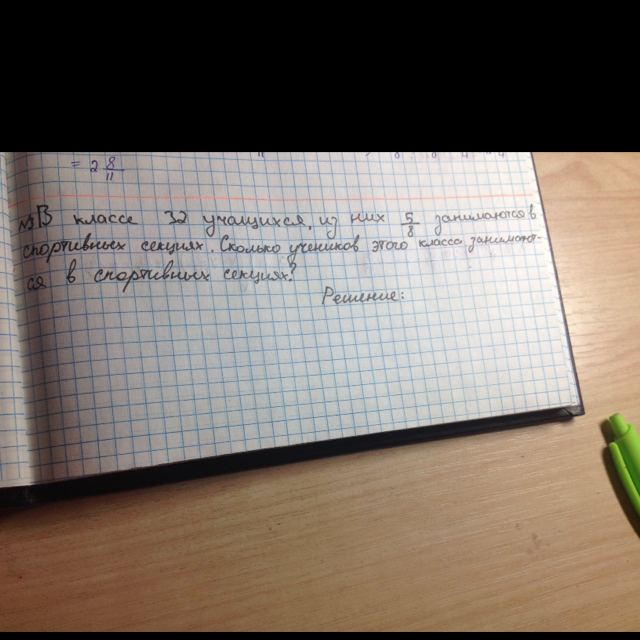 = 2 8/11
№3 В классе 32 учащихся, из них 5/8 занимаются в
спортивных секциях. Сколько учеников этого класса занимают-
ся в спортивных секциях?
Решение: